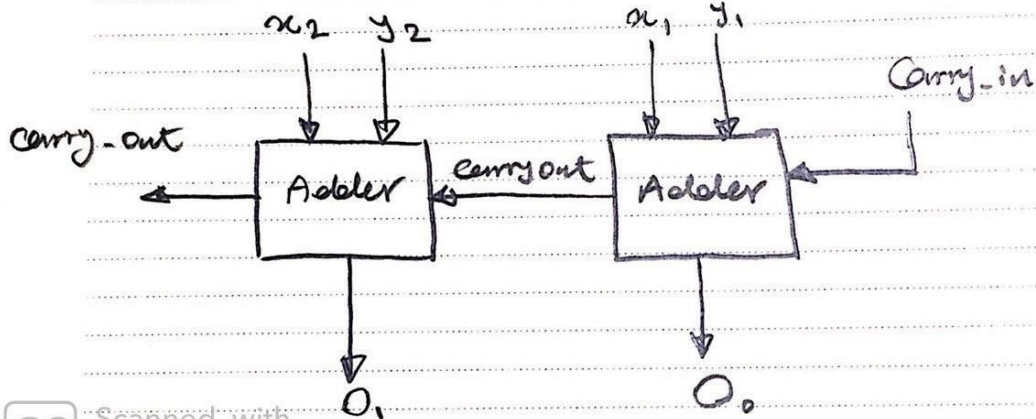 x₂ y₂ x₁ y₁
Carry_in
carry-out
Adder carryout Adder
O₁ O₀
Scanned with